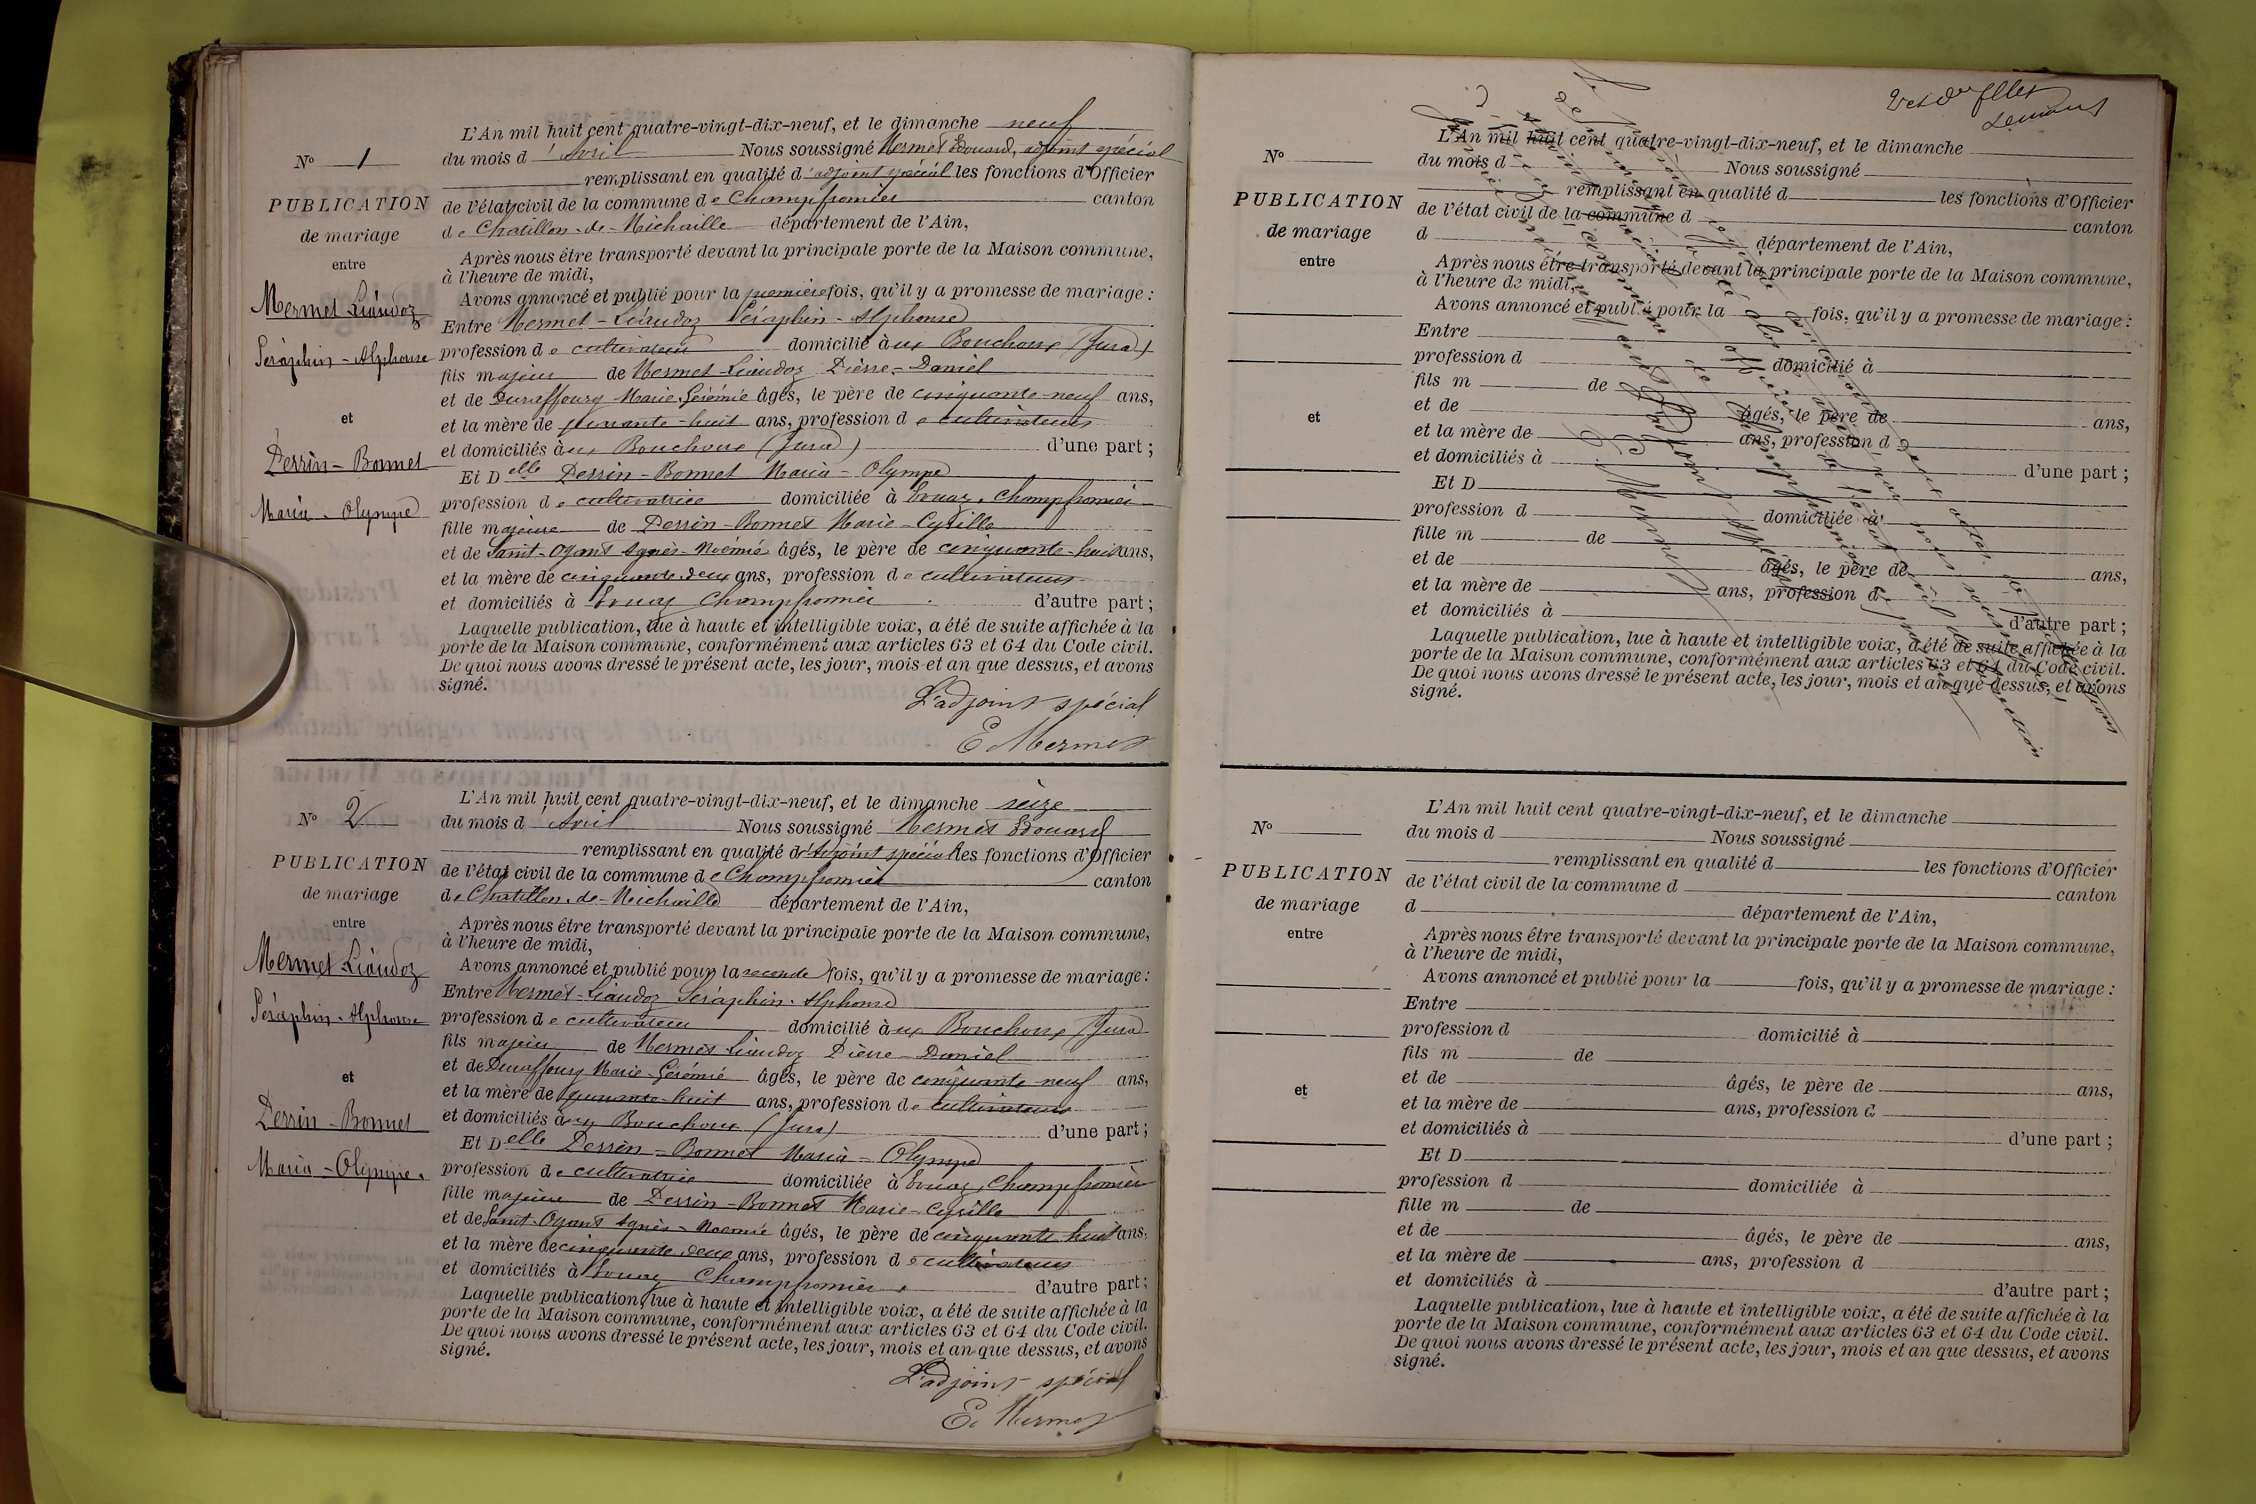 L'An mil huit cent quatre-vingt-dix-neuf, et le dimanche neuf
N° 1
du mois d'Avril Nous soussigné Mermet Edouard, adjoint spécial
remplissant en qualité d'adjoint spécial les fonctions d'Officier
PUBLICATION
de l'état civil de la commune de Champfromier canton
de mariage
de Chatillon-de-Michaille département de l'Ain,
entre
Après nous être transporté devant la principale porte de la Maison commune,
à l'heure de midi,
Mermet Liaudoz
Avons annoncé et publié pour la première fois, qu'il y a promesse de mariage :
Entre Mermet-Liaudoz Séraphin-Alphonse
Séraphin-Alphonse
profession de cultivateur domicilié aux Bouchoux (Jura)
fils majeur de Mermet-Liaudoz Pierre-Daniel
et de Duraffourg Marie-Gérémie âgés, le père de cinquante-neuf ans,
et
et la mère de quarante-huit ans, profession de cultivateurs
et domiciliés à ux Bouchoux (Jura) d'une part ;
Perrin-Bonnet
Et Delle Perrin-Bonnet Maria-Olympe
Maria-Olympe
profession de cultivatrice domiciliée à Evuaz, Champfromier
fille majeure de Perrin-Bonnet Marie-Cyrille
et de Saint-Oyant Agnès-Noémie âgés, le père de cinquante-huit ans,
et la mère de cinquante-deux ans, profession de cultivateurs
et domiciliés à Evuaz Champfromier d'autre part ;
Laquelle publication, lue à haute et intelligible voix, a été de suite affichée à la
porte de la Maison commune, conformément aux articles 63 et 64 du Code civil.
De quoi nous avons dressé le présent acte, les jour, mois et an que dessus, et avons
signé.
L'adjoint spécial
E Mermet
L'An mil huit cent quatre-vingt-dix-neuf, et le dimanche seize
N° 2
du mois d'Avril Nous soussigné Mermet Edouard
remplissant en qualité d'Adjoint spécial les fonctions d'Officier
PUBLICATION
de l'état civil de la commune de Champfromier canton
de mariage
de Chatillon-de-Michaille département de l'Ain,
entre
Après nous être transporté devant la principale porte de la Maison commune,
à l'heure de midi,
Mermet Liaudoz
Avons annoncé et publié pour la seconde fois, qu'il y a promesse de mariage :
Entre Mermet-Liaudoz Séraphin-Alphonse
Séraphin-Alphonse
profession de cultivateur domicilié à ux Bouchoux (Jura)
fils majeur de Mermet Liaudoz Pierre-Daniel
et de Duraffourg Marie-Gérémie âgés, le père de cinquante neuf ans,
et
et la mère de quarante-huit ans, profession de cultivateurs
et domiciliés à ux Bouchoux (Jura) d'une part ;
Perrin-Bonnet
Et Delle Perrin-Bonnet Maria-Olympe
Maria-Olympe.
profession de cultivatrice domiciliée à Evuaz, Champfromier
fille majeure de Perrin-Bonnet Marie-Cyrille
et de Saint-Oyant Agnès-Noémie âgés, le père de cinquante huit ans,
et la mère de cinquante-deux ans, profession de cultivateurs
et domiciliés à Evuaz Champfromier d'autre part ;
Laquelle publication, lue à haute et intelligible voix, a été de suite affichée à la
porte de la Maison commune, conformément aux articles 63 et 64 du Code civil.
De quoi nous avons dressé le présent acte, les jour, mois et an que dessus, et avons
signé.
L'adjoint spécial
E. Mermet
L'An mil huit cent quatre-vingt-dix-neuf, et le dimanche
N°
du mois d Nous soussigné
remplissant en qualité d les fonctions d'Officier
PUBLICATION
de l'état civil de la commune d canton
de mariage
d département de l'Ain,
entre
Après nous être transporté devant la principale porte de la Maison commune,
à l'heure de midi,
Avons annoncé et publié pour la fois, qu'il y a promesse de mariage :
Entre
profession d domicilié à
fils m de
et de âgés, le père de ans,
et
et la mère de ans, profession d
et domiciliés à d'une part ;
Et D
profession d domiciliée à
fille m de
et de âgés, le père de ans,
et la mère de ans, profession d
et domiciliés à d'autre part ;
Laquelle publication, lue à haute et intelligible voix, a été de suite affichée à la
porte de la Maison commune, conformément aux articles 63 et 64 du Code civil.
De quoi nous avons dressé le présent acte, les jour, mois et an que dessus, et avons
signé.
E. Mermet
L'An mil huit cent quatre-vingt-dix-neuf, et le dimanche
N°
du mois d Nous soussigné
remplissant en qualité d les fonctions d'Officier
PUBLICATION
de l'état civil de la commune d canton
de mariage
d département de l'Ain,
entre
Après nous être transporté devant la principale porte de la Maison commune,
à l'heure de midi,
Avons annoncé et publié pour la fois, qu'il y a promesse de mariage :
Entre
profession d domicilié à
fils m de
et de âgés, le père de ans,
et
et la mère de ans, profession d
et domiciliés à d'une part ;
Et D
profession d domiciliée à
fille m de
et de âgés, le père de ans,
et la mère de ans, profession d
et domiciliés à d'autre part ;
Laquelle publication, lue à haute et intelligible voix, a été de suite affichée à la
porte de la Maison commune, conformément aux articles 63 et 64 du Code civil.
De quoi nous avons dressé le présent acte, les jour, mois et an que dessus, et avons
signé.